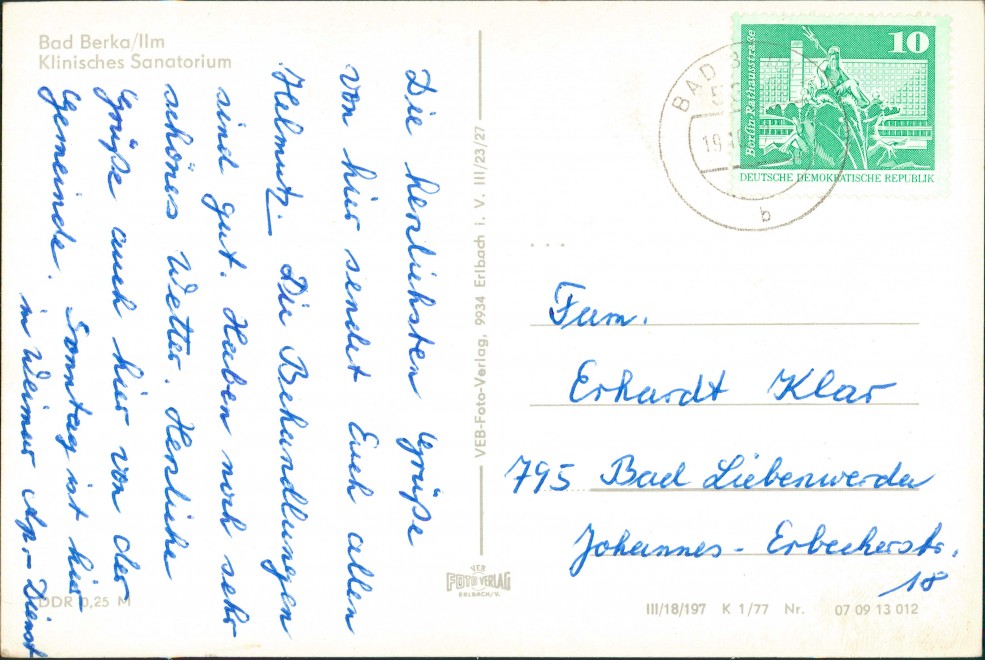 Bad Berka/Ilm
Klinisches Sanatorium
Die herzlichsten Grüße
von hier sendet Euch allen
Helmut. Die Behandlungen
sind gut. Haben noch sehr
schönes Wetter. Herzliche
Grüße auch hier von der
Gemeinde. Sonntag ist hier
in Weimar Ap.-Dienst
DDR 0,25 M
VEB-Foto-Verlag, 9934 Erlbach i. V. III/23/27
VEB
FOTO VERLAG
ERLBACH/V.
BAD
19.1
b
10
Berlin Rathausstraße
DEUTSCHE DEMOKRATISCHE REPUBLIK
Fam.
Erhardt Klar
795 Bad Liebenwerda
Johannes-Erbeckerstr.
18
III/18/197 K 1/77 Nr. 07 09 13 012